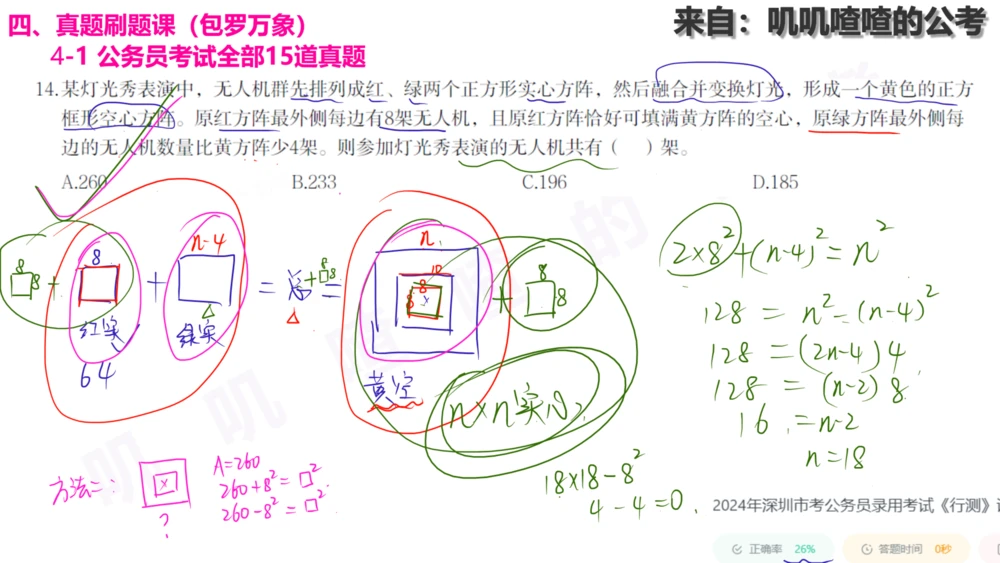 四、真题刷题课（包罗万象）
来自：叽叽喳喳的公考
4-1 公务员考试全部15道真题
14.某灯光秀表演中，无人机群先排列成红、绿两个正方形实心方阵，然后融合并变换灯光，形成一个黄色的正方
框形空心方阵。原红方阵最外侧每边有8架无人机，且原红方阵恰好可填满黄方阵的空心，原绿方阵最外侧每
边的无人机数量比黄方阵少4架。则参加灯光秀表演的无人机共有（　）架。
A.260 B.233 C.196 D.185
8 8 + 8 + n-4 = 总 + 8 8 = n 10 8 8 x + 8 8
红实 绿实 黄空
64
n×n实心
2×8²+(n-4)²=n²
128 = n²-(n-4)²
128 =(2n-4)4
128 = (n-2)8
16 = n-2
n=18
18×18-8²
4-4=0
方法二： x ?
A=260
260+8²=□²
260-8²=□²
2024年深圳市考公务员录用考试《行测》
正确率 26% 答题时间 0秒